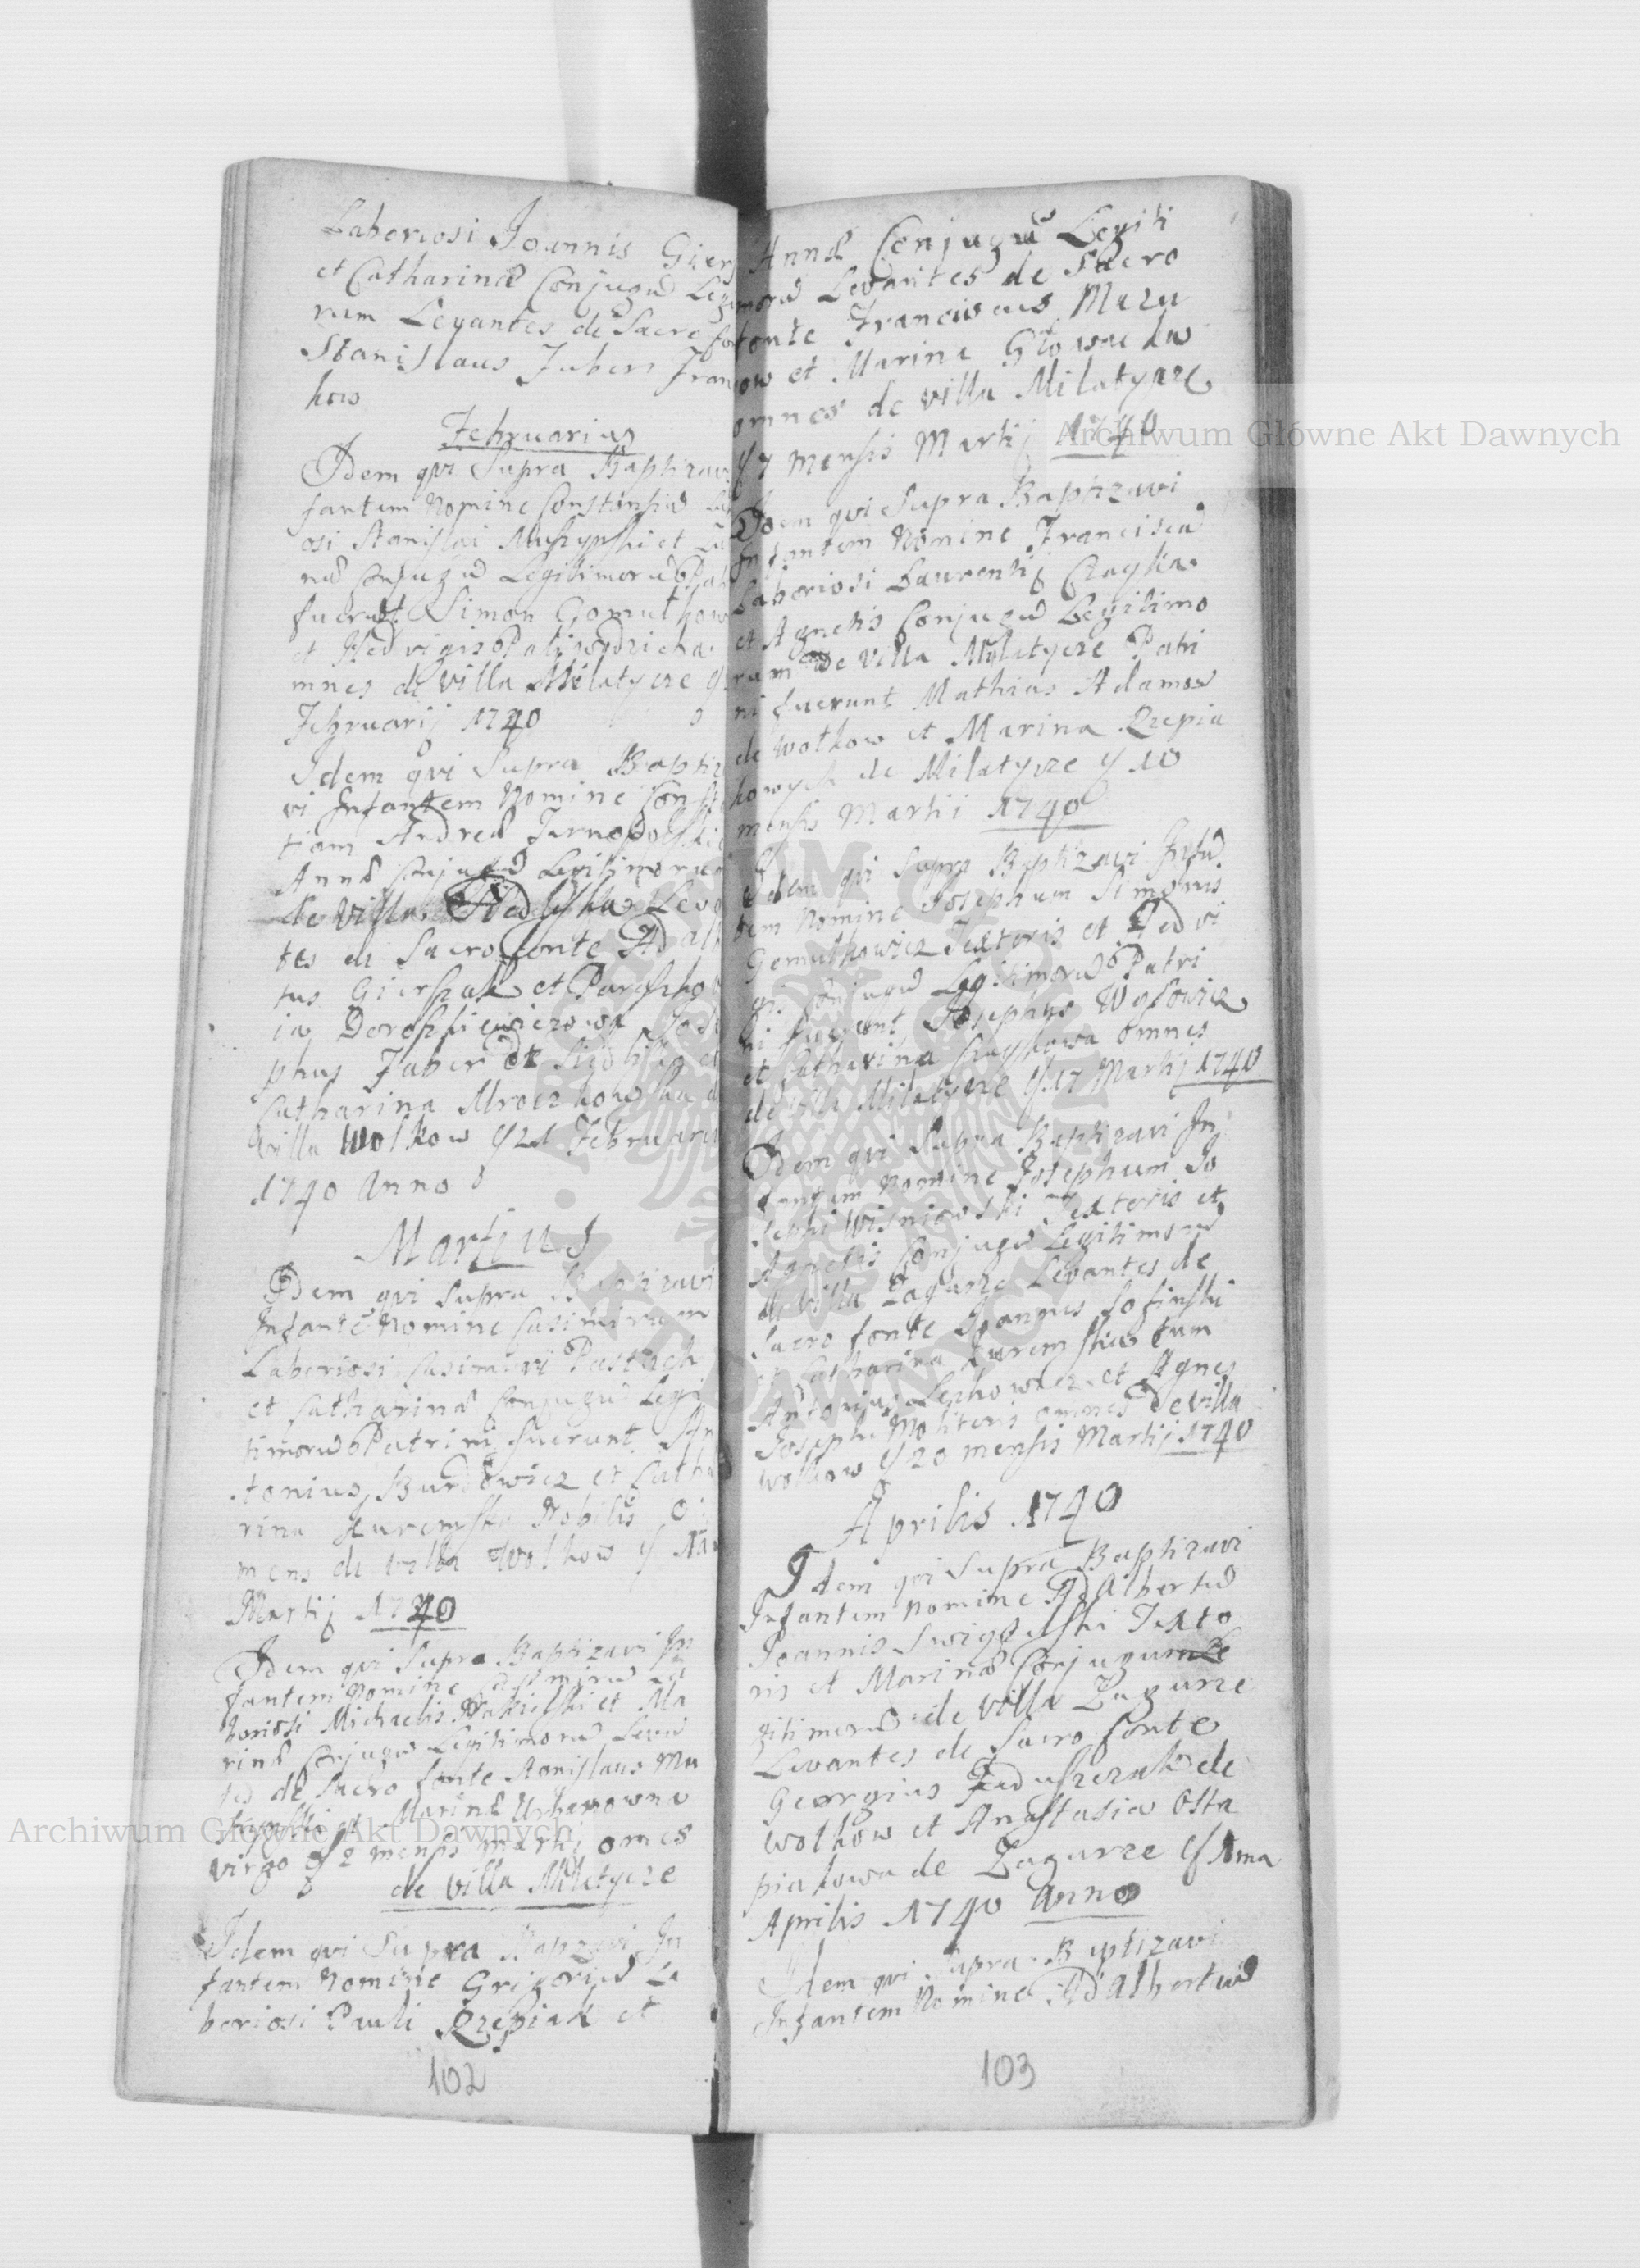 Laboriosi Joannis Giers
et Catharinæ Conjugū Legi
rum Levantes de Sacro fon
Stanislaus Juber Fran
kow
Februarius
Idem qvi Supra Baptizavi
fantem Nomine Constantiā La
osi Stanislai Muszynski et Lu
næ Conjugū Legitimorū Patri
fuerunt Simon Gomułkow
et Hedvigis Paliwodzicha
mnes de villa Milatycze
Februarij 1740
Idem qvi Supra Baptiz
vi Infantem Nomine Const
tiam Andreæ Tarnopolski
Annæ Conjugū Legitimorum
de villa Leva
tes de Sacro fonte Adalb
tus Gierszak et
ia Jose
phus Faber de
Catharina Mroczkowska d
villa Wolkow 21 Februarii
1740 Anno
Martius
Idem qvi Supra Baptizavi
Infantē Nomine Casimirum
Laboriosi Casimiri Pastuch
et Catharinæ Conjugū Legi
timorū Patrini fuerunt An
tonius Burdowicz et Catha
rina Kuremska Nobilis O
mens de villa Wolkow
Martij 1740
Idem qvi Supra Baptizavi In
fantem Nomine Casimirū La
boriosi Michaelis Nakielski et Ma
rinæ Conjugū Legitimorū Levā
tes de Sacro fonte Stanislaus Mu
szynski et Marina Urbanowna
virgo 2 mensis Martij omes
de villa Milatycze
Idem qvi Supra Bapzavi In
fantem Nomine Grigoriū La
boriosi Pauli Rzepiak et
102
Annæ Conjugū Legiti
morū Levantes de Sacro
fonte Franciscus Mazu
ow et Marina Głowacka
omnes de villa Milatycze
7 mensis Martij 1740
Idem qvi Supra Baptizavi
Infantem Nomine Franciscū
Laboriosi Laurentij Czayka
et Agnetis Conjugū Legitimo
rum de villa Milatycze Patri
ni fuerunt Mathias Adamow
de Wolkow et Marina Rzepia
kowych de Milatycze 10
mensis Martii 1740
Idem qvi Supra Baptizavi Infā
tem Nomine Josephum Simonis
Gomułkowicz Textoris et Hedvi
gis Conjugū Legitimorū Patri
ni fuerunt Josephus Wąsowicz
et Catharina Czaykowa omnes
de villa Milatycze 17 Martij 1740
Idem qvi Supra Baptizavi In
fantem Nomine Josephum Jo
sephi Wisniowski Textoris et
Agnetis Conjugū Legitimorū
de villa Zagurze Levantes de
Sacro fonte Joannes Sosinski
et Catharina Kuremska tum
Antonius Lechowicz et Agnes
Josephi Molitoris omnes de villa
Wolkow 20 mensis Martij 1740
Aprilis 1740
Idem qvi Supra Baptizavi
Infantem Nomine Adalbertū
Joannis Texto
ris et Marinæ Conjugum Le
gitimorū de villa Zagurze
Levantes de Sacro fonte
Georgius Fedusczak de
Wolkow et Anastasia Osta
piakowa de Zagurze 1ma
Aprilis 1740 Anno
Idem qvi Supra Baptizavi
Infantem Nomine Adalbertū
103
Archiwum Główne Akt Dawnych
Archiwum Główne Akt Dawnych